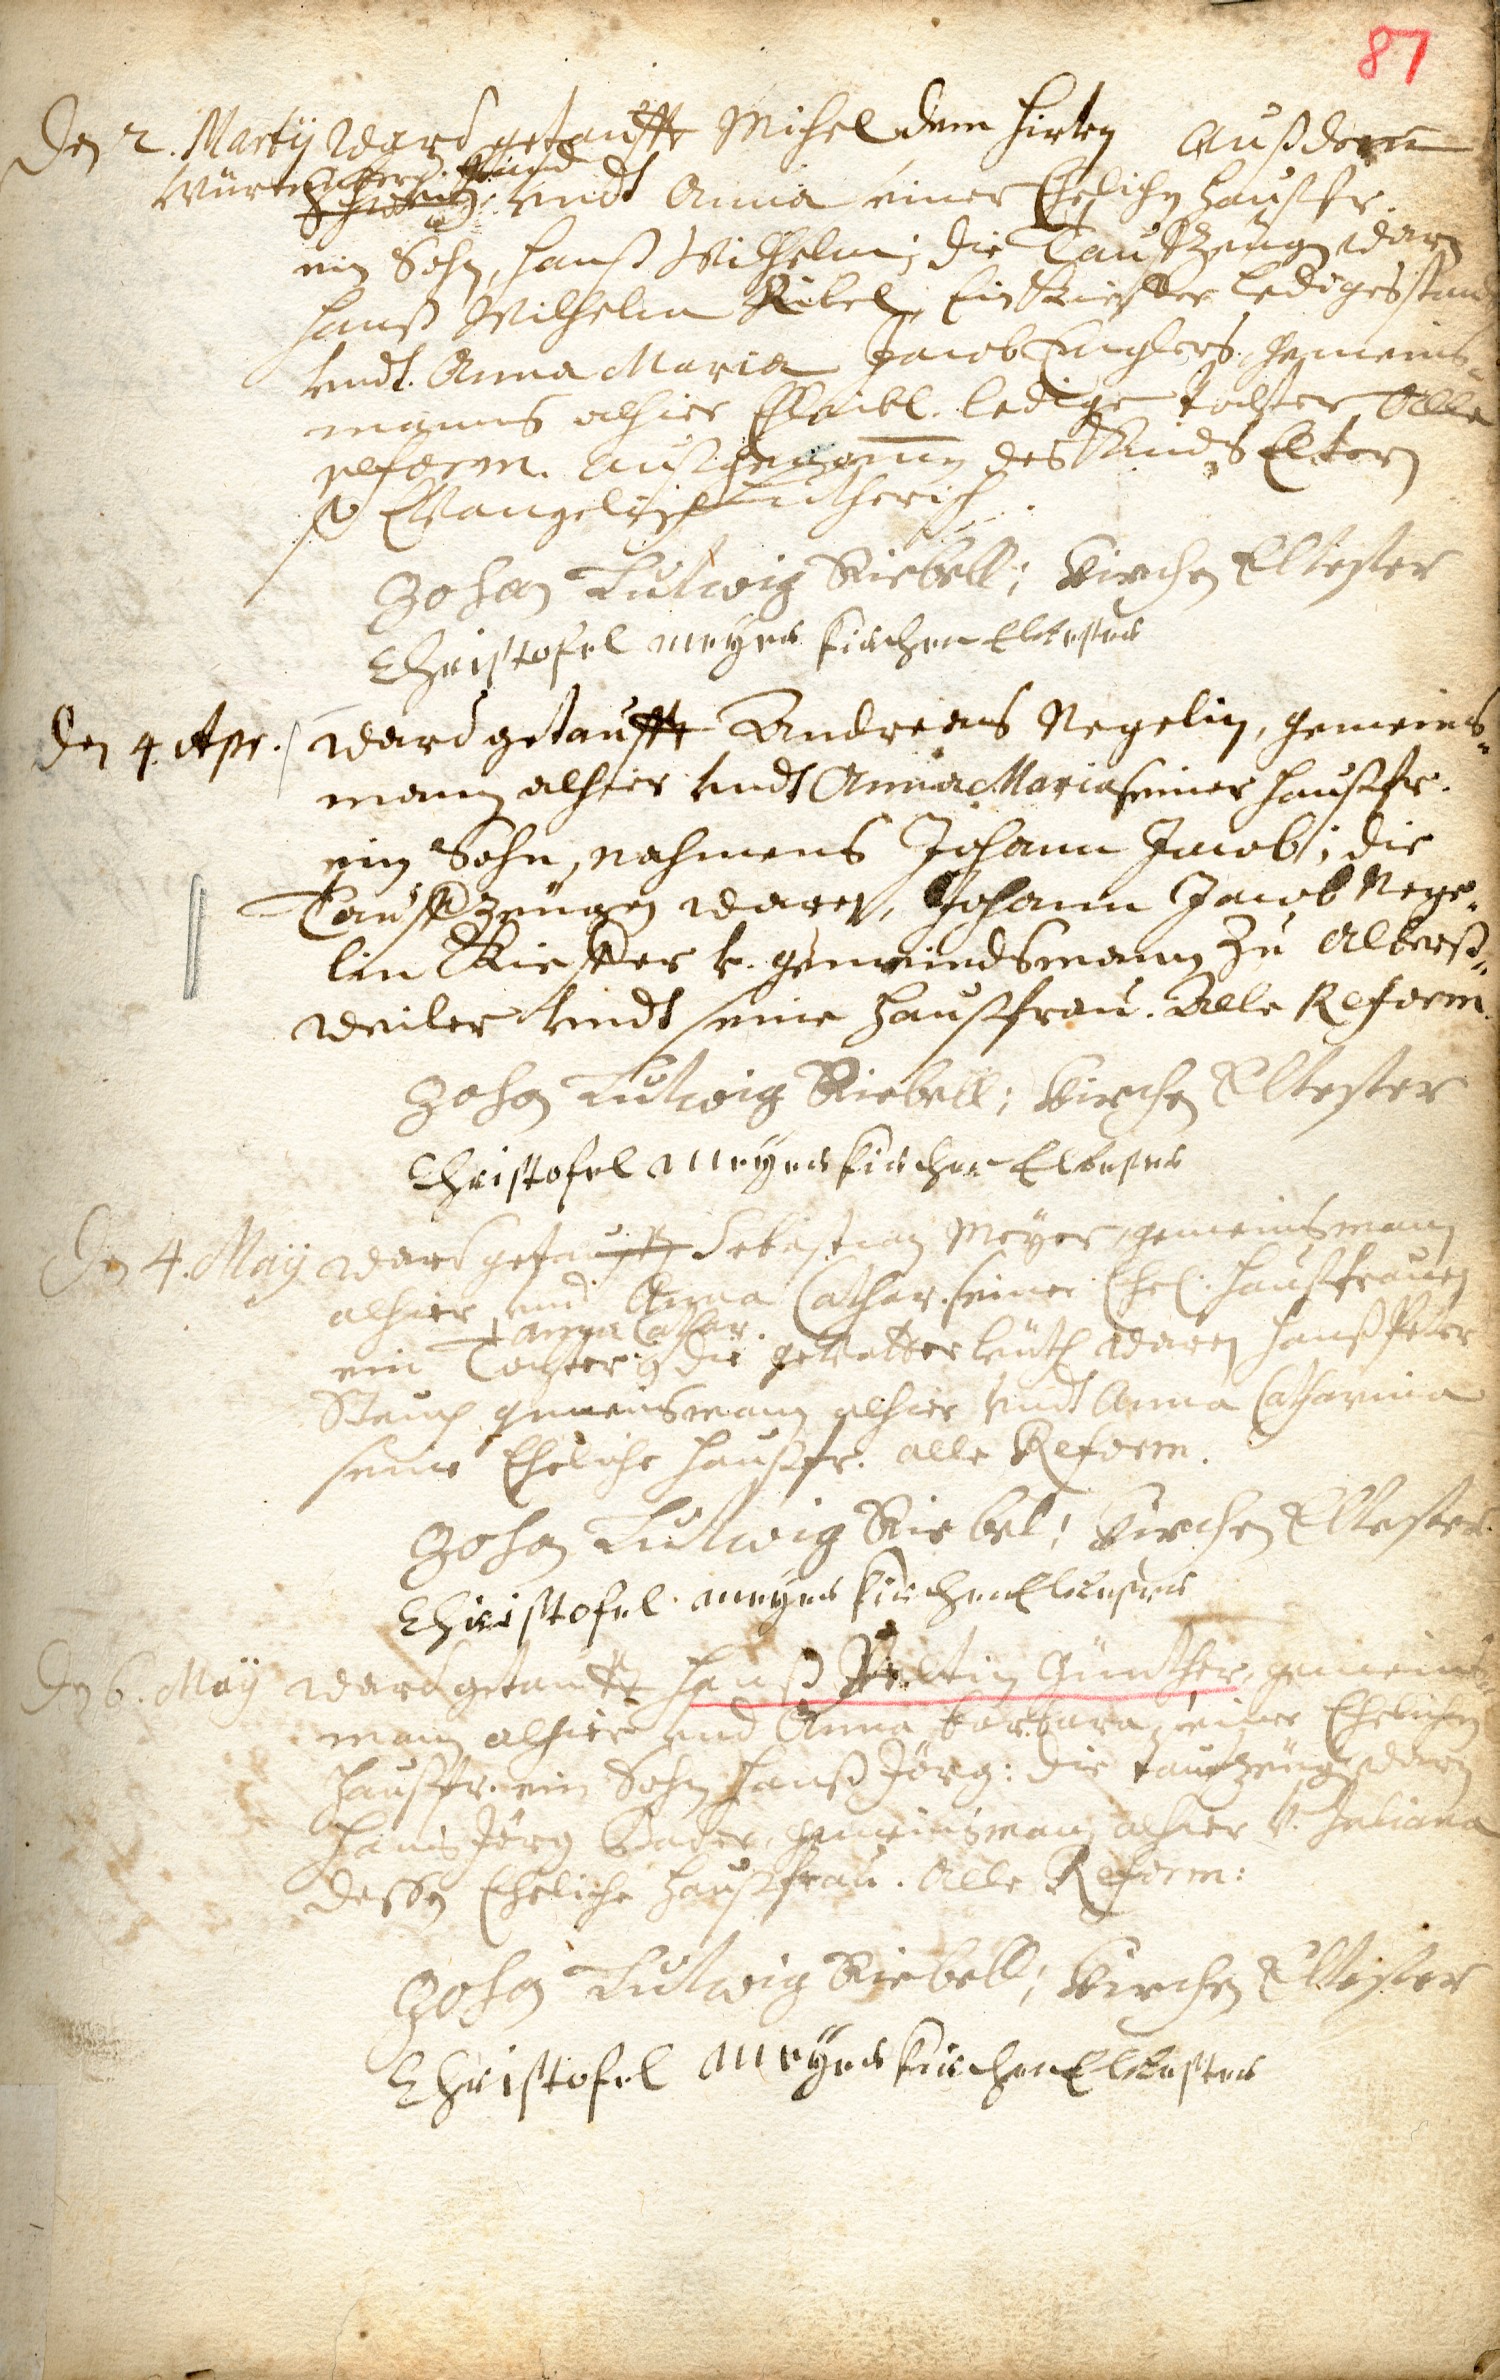 87
Den 2. Martÿ ward getaufft Michel dem hirten Auß dem
Würtenberg. Land
Schweitz vndt Anna einer Ehelichen haußfr.
ein Sohn, hanß Wilhelm; die Tauffzeugen waren
hanß Wilhelm Ribel, ein Kieffer ledigesstands
vndt Anna Maria Jacob Englers, gemeins=
manns alhier Eheleibl. ledige tochter, Alle
reform. Außgenommen des Kinds Eltern
so Evangelisch Lutherisch.
Johan Ludwig Riebell; Kirchen Eltester
Christofel meyer kirchen Eltester
Den 4. Apr. ward getaufft Andreas Negelin, gemeins=
mann alhier vndt Anna Maria seiner haußfr.
ein Sohn, nahmens Johann Jacob; die
Tauffzeugen waren, Johann Jacob Nege=
lin Kieffer v. gemeindsmann zu Alberß=
weiler vndt seine haußfrau. Alle Reform.
Johan Ludwig Riebell; Kirchen Eltester
Christofel meyer kirchen Eltester
Den 4. Maÿ ward getaufft Sebastian Meyer, gemeinsmann
alhier vnd Anna Cathar. seiner Ehel. haußfrauen
Anna Cathar.
ein Tochter; die gevatterleuth waren hanß Peter
gemeinsmann alhier vndt Anna Catharina
seine Eheliche haußfr. alle Reform.
Johan Ludwig Riebel; Kirchen Eltester
Christofel meyer kirchen Eltester
Den 6. Maÿ ward getaufft hanß Veltin Günther, gemeins=
mann alhier vnd Anna barbara seiner Ehelichen
haußfr. ein Sohn hanß Jörg: die tauffzeugen waren
hanß Jörg Bader, gemeinsmann alhier v. Juliana
dessen Eheliche haußfrau. Alle Reform:
Johan Ludwig Riebell; Kirchen Eltester
Christofel meyer kirchen Eltester